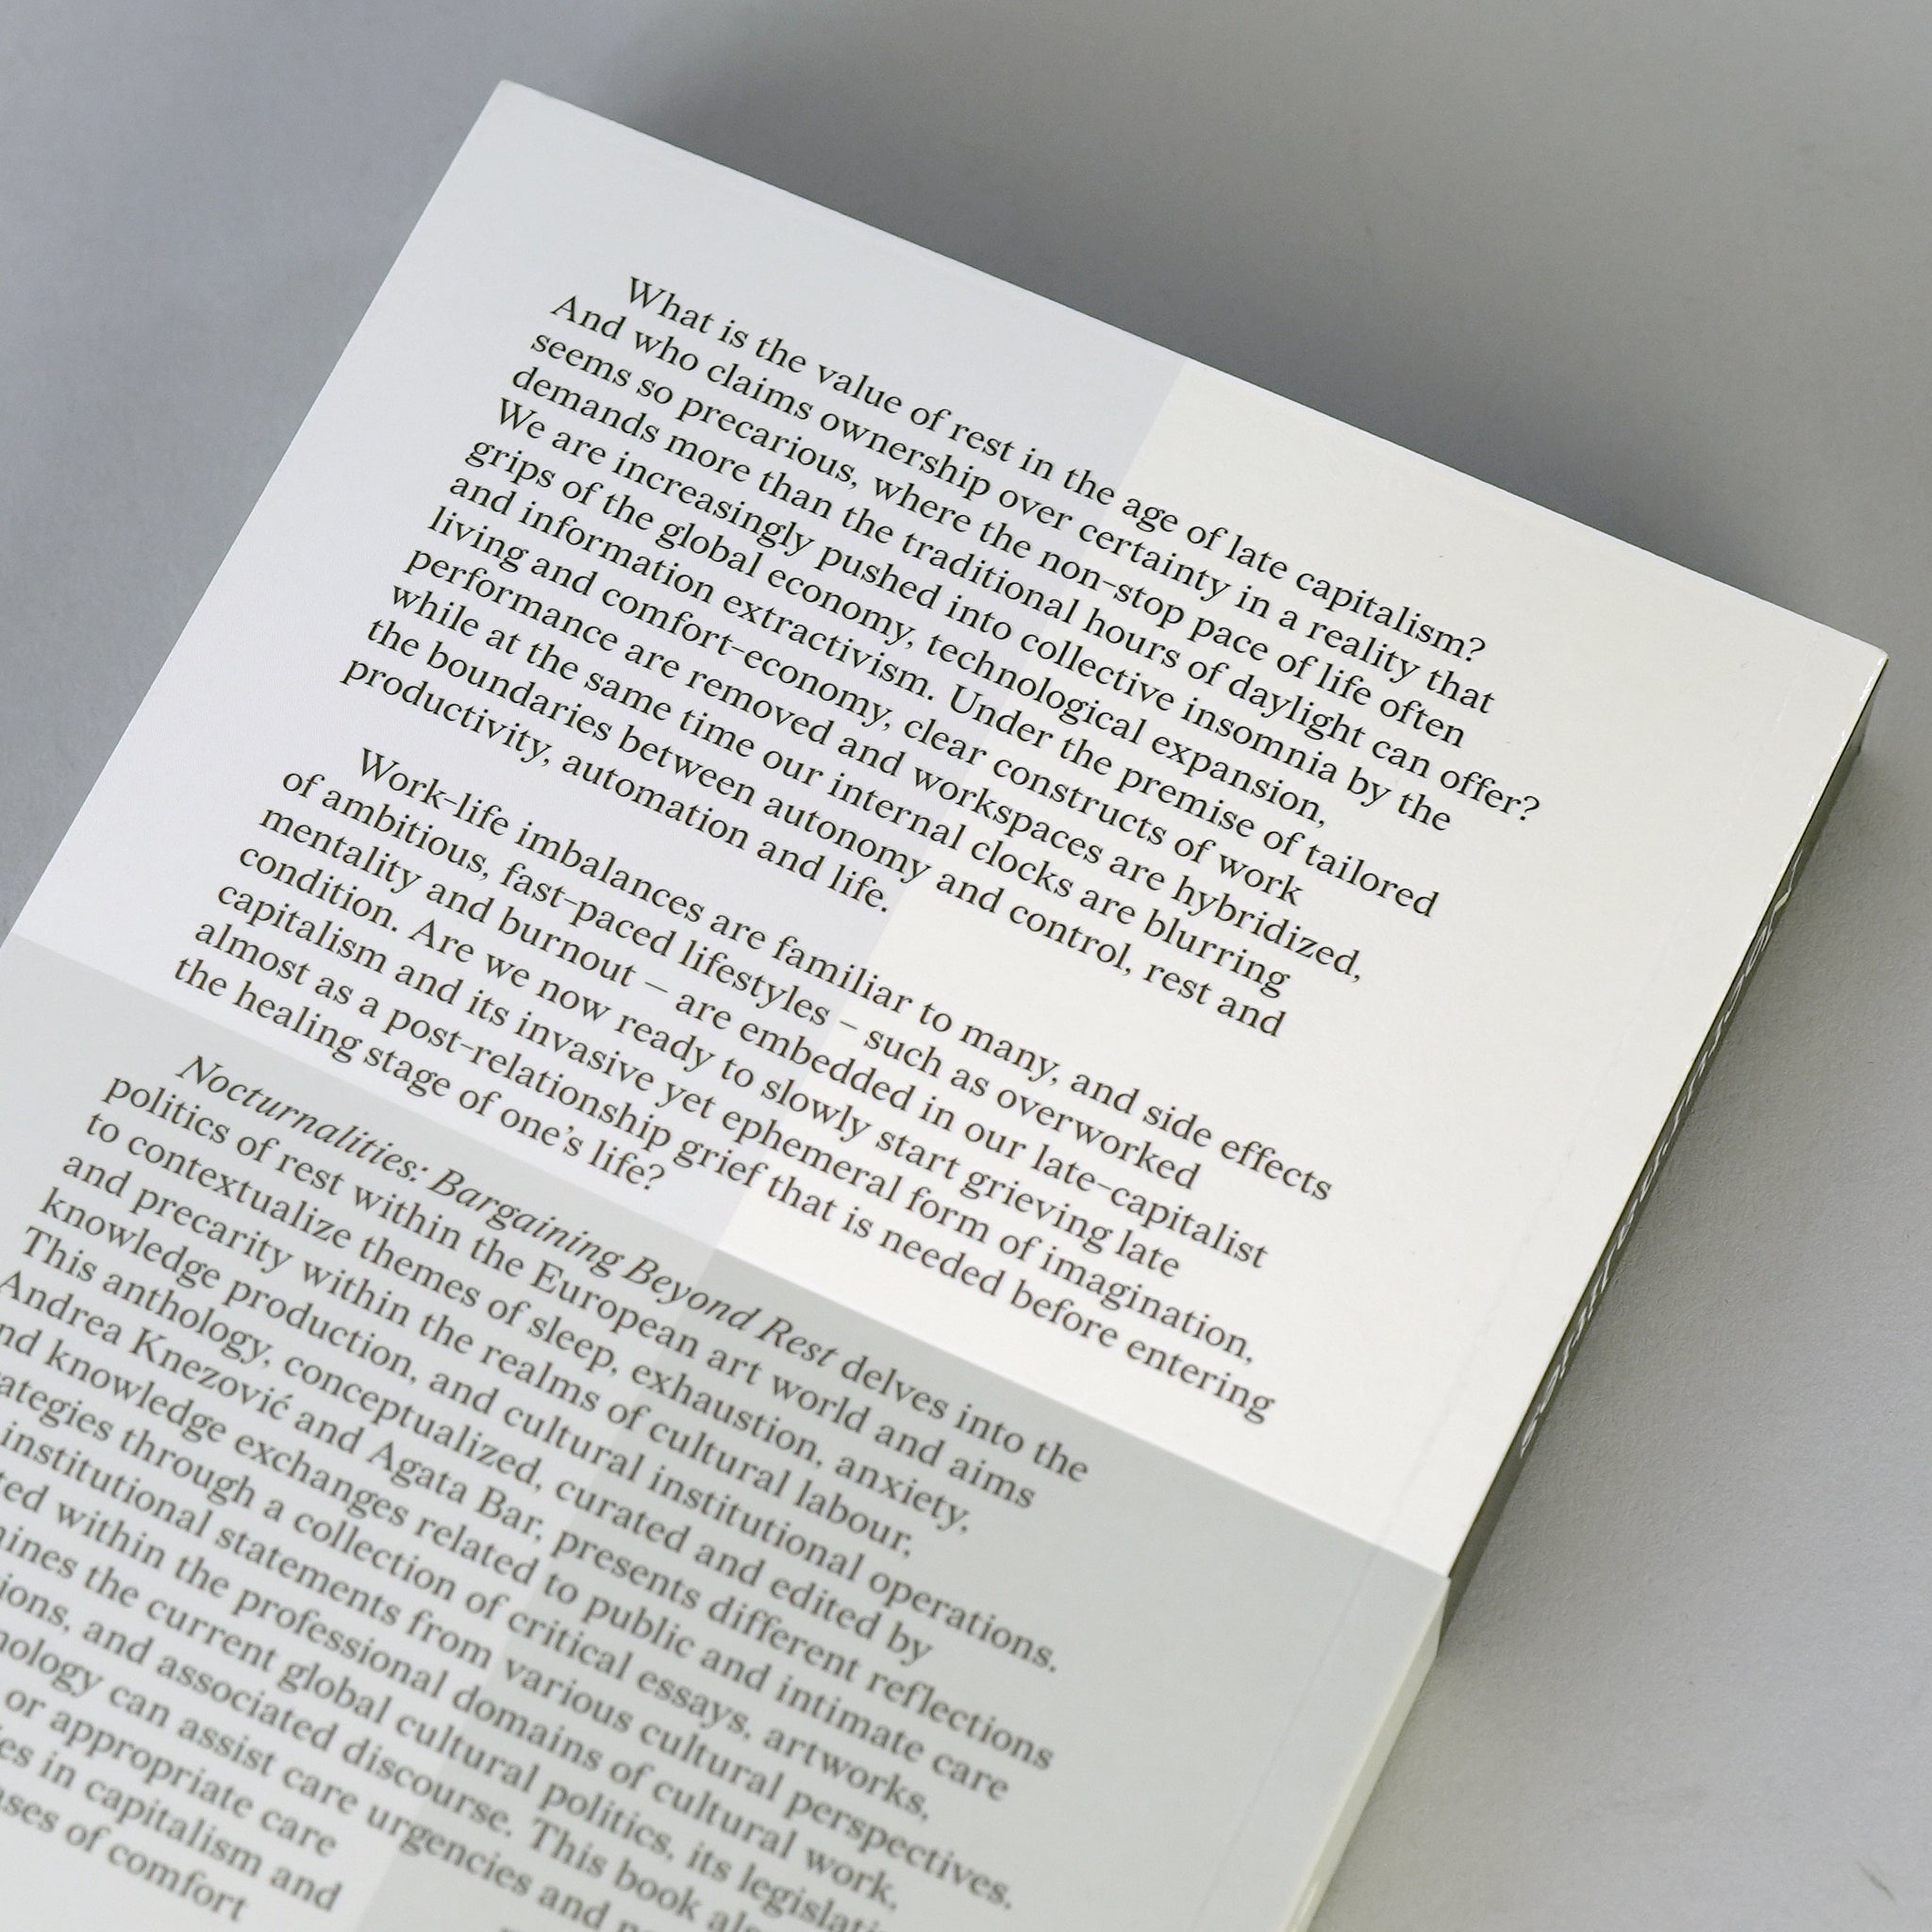 What is the value of rest in the age of late capitalism?
And who claims ownership over certainty in a reality that
seems so precarious, where the non-stop pace of life often
demands more than the traditional hours of daylight can offer?
We are increasingly pushed into collective insomnia by the
grips of the global economy, technological expansion,
and information extractivism. Under the premise of tailored
living and comfort-economy, clear constructs of work
performance are removed and workspaces are hybridized,
while at the same time our internal clocks are blurring
the boundaries between autonomy and control, rest and
productivity, automation and life.
Work-life imbalances are familiar to many, and side effects
of ambitious, fast-paced lifestyles – such as overworked
mentality and burnout – are embedded in our late-capitalist
condition. Are we now ready to slowly start grieving late
capitalism and its invasive yet ephemeral form of imagination,
almost as a post-relationship grief that is needed before entering
the healing stage of one's life?
Nocturnalities: Bargaining Beyond Rest delves into the
politics of rest within the European art world and aims
to contextualize themes of sleep, exhaustion, anxiety,
and precarity within the realms of cultural labour,
knowledge production, and cultural institutional operations.
This anthology, conceptualized, curated and edited by
Andrea Knezović and Agata Bar, presents different reflections
knowledge exchanges related to public and intimate care
through a collection of critical essays, artworks,
institutional statements from various cultural perspectives.
within the professional domains of cultural work,
the current global cultural politics, its
and associated discourse. This book
can assist care urgencies and
or appropriate care
in capitalism and
of comfort